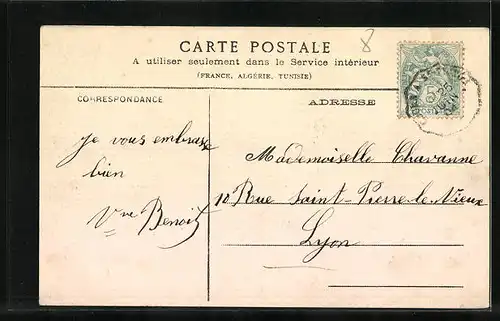 8
CARTE POSTALE
A utiliser seulement dans le Service intérieur
(FRANCE, ALGÉRIE, TUNISIE)
CORRESPONDANCE
ADRESSE
je vous embrasse
bien
Vve Benoit
Mademoiselle Chavanne
10 Rue Saint-Pierre-le-Vieux
Lyon
5